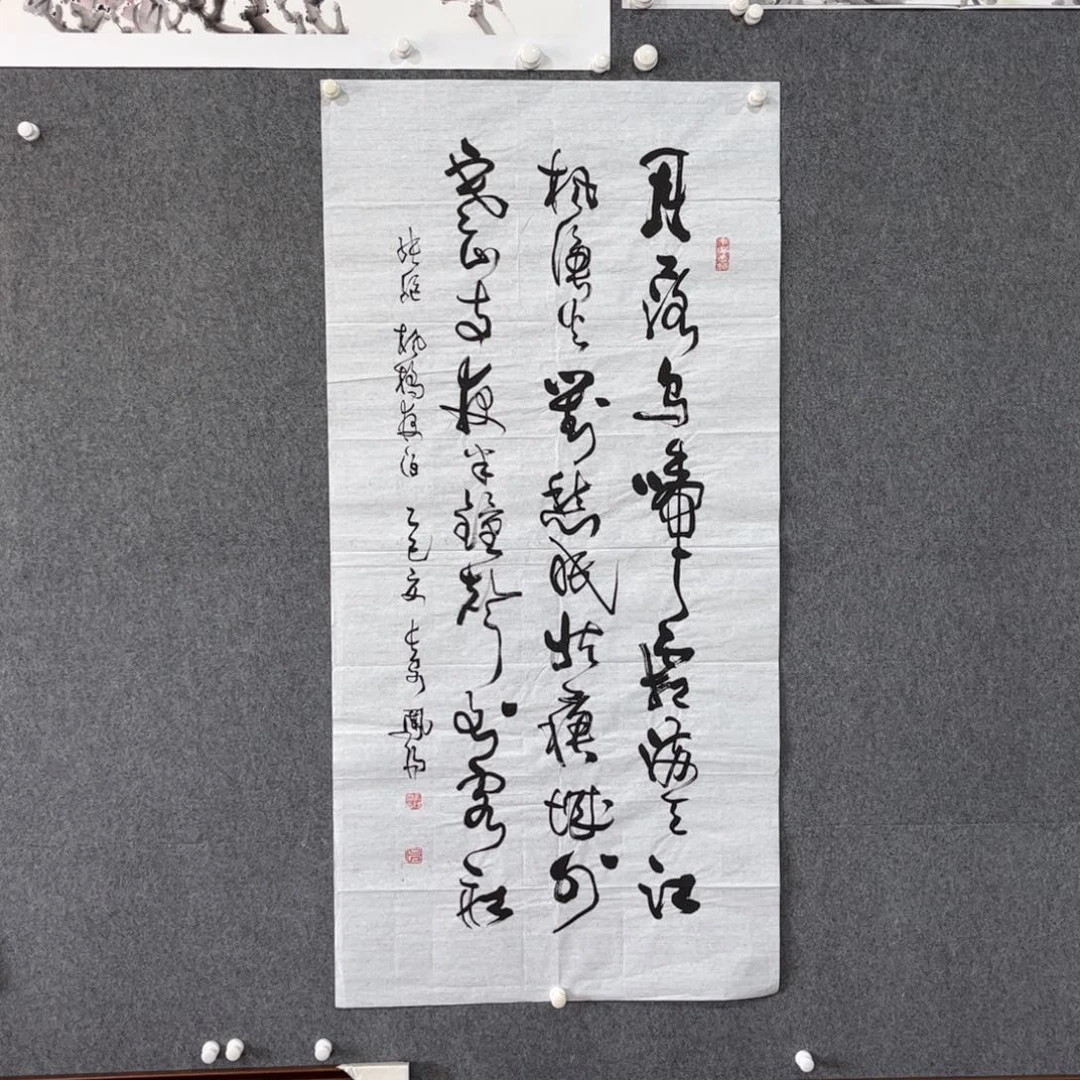 月落乌啼霜满天江
枫渔火對愁眠姑蘇城外
寒山寺夜半鐘聲到客船
张继 枫橋夜泊 乙巳夏